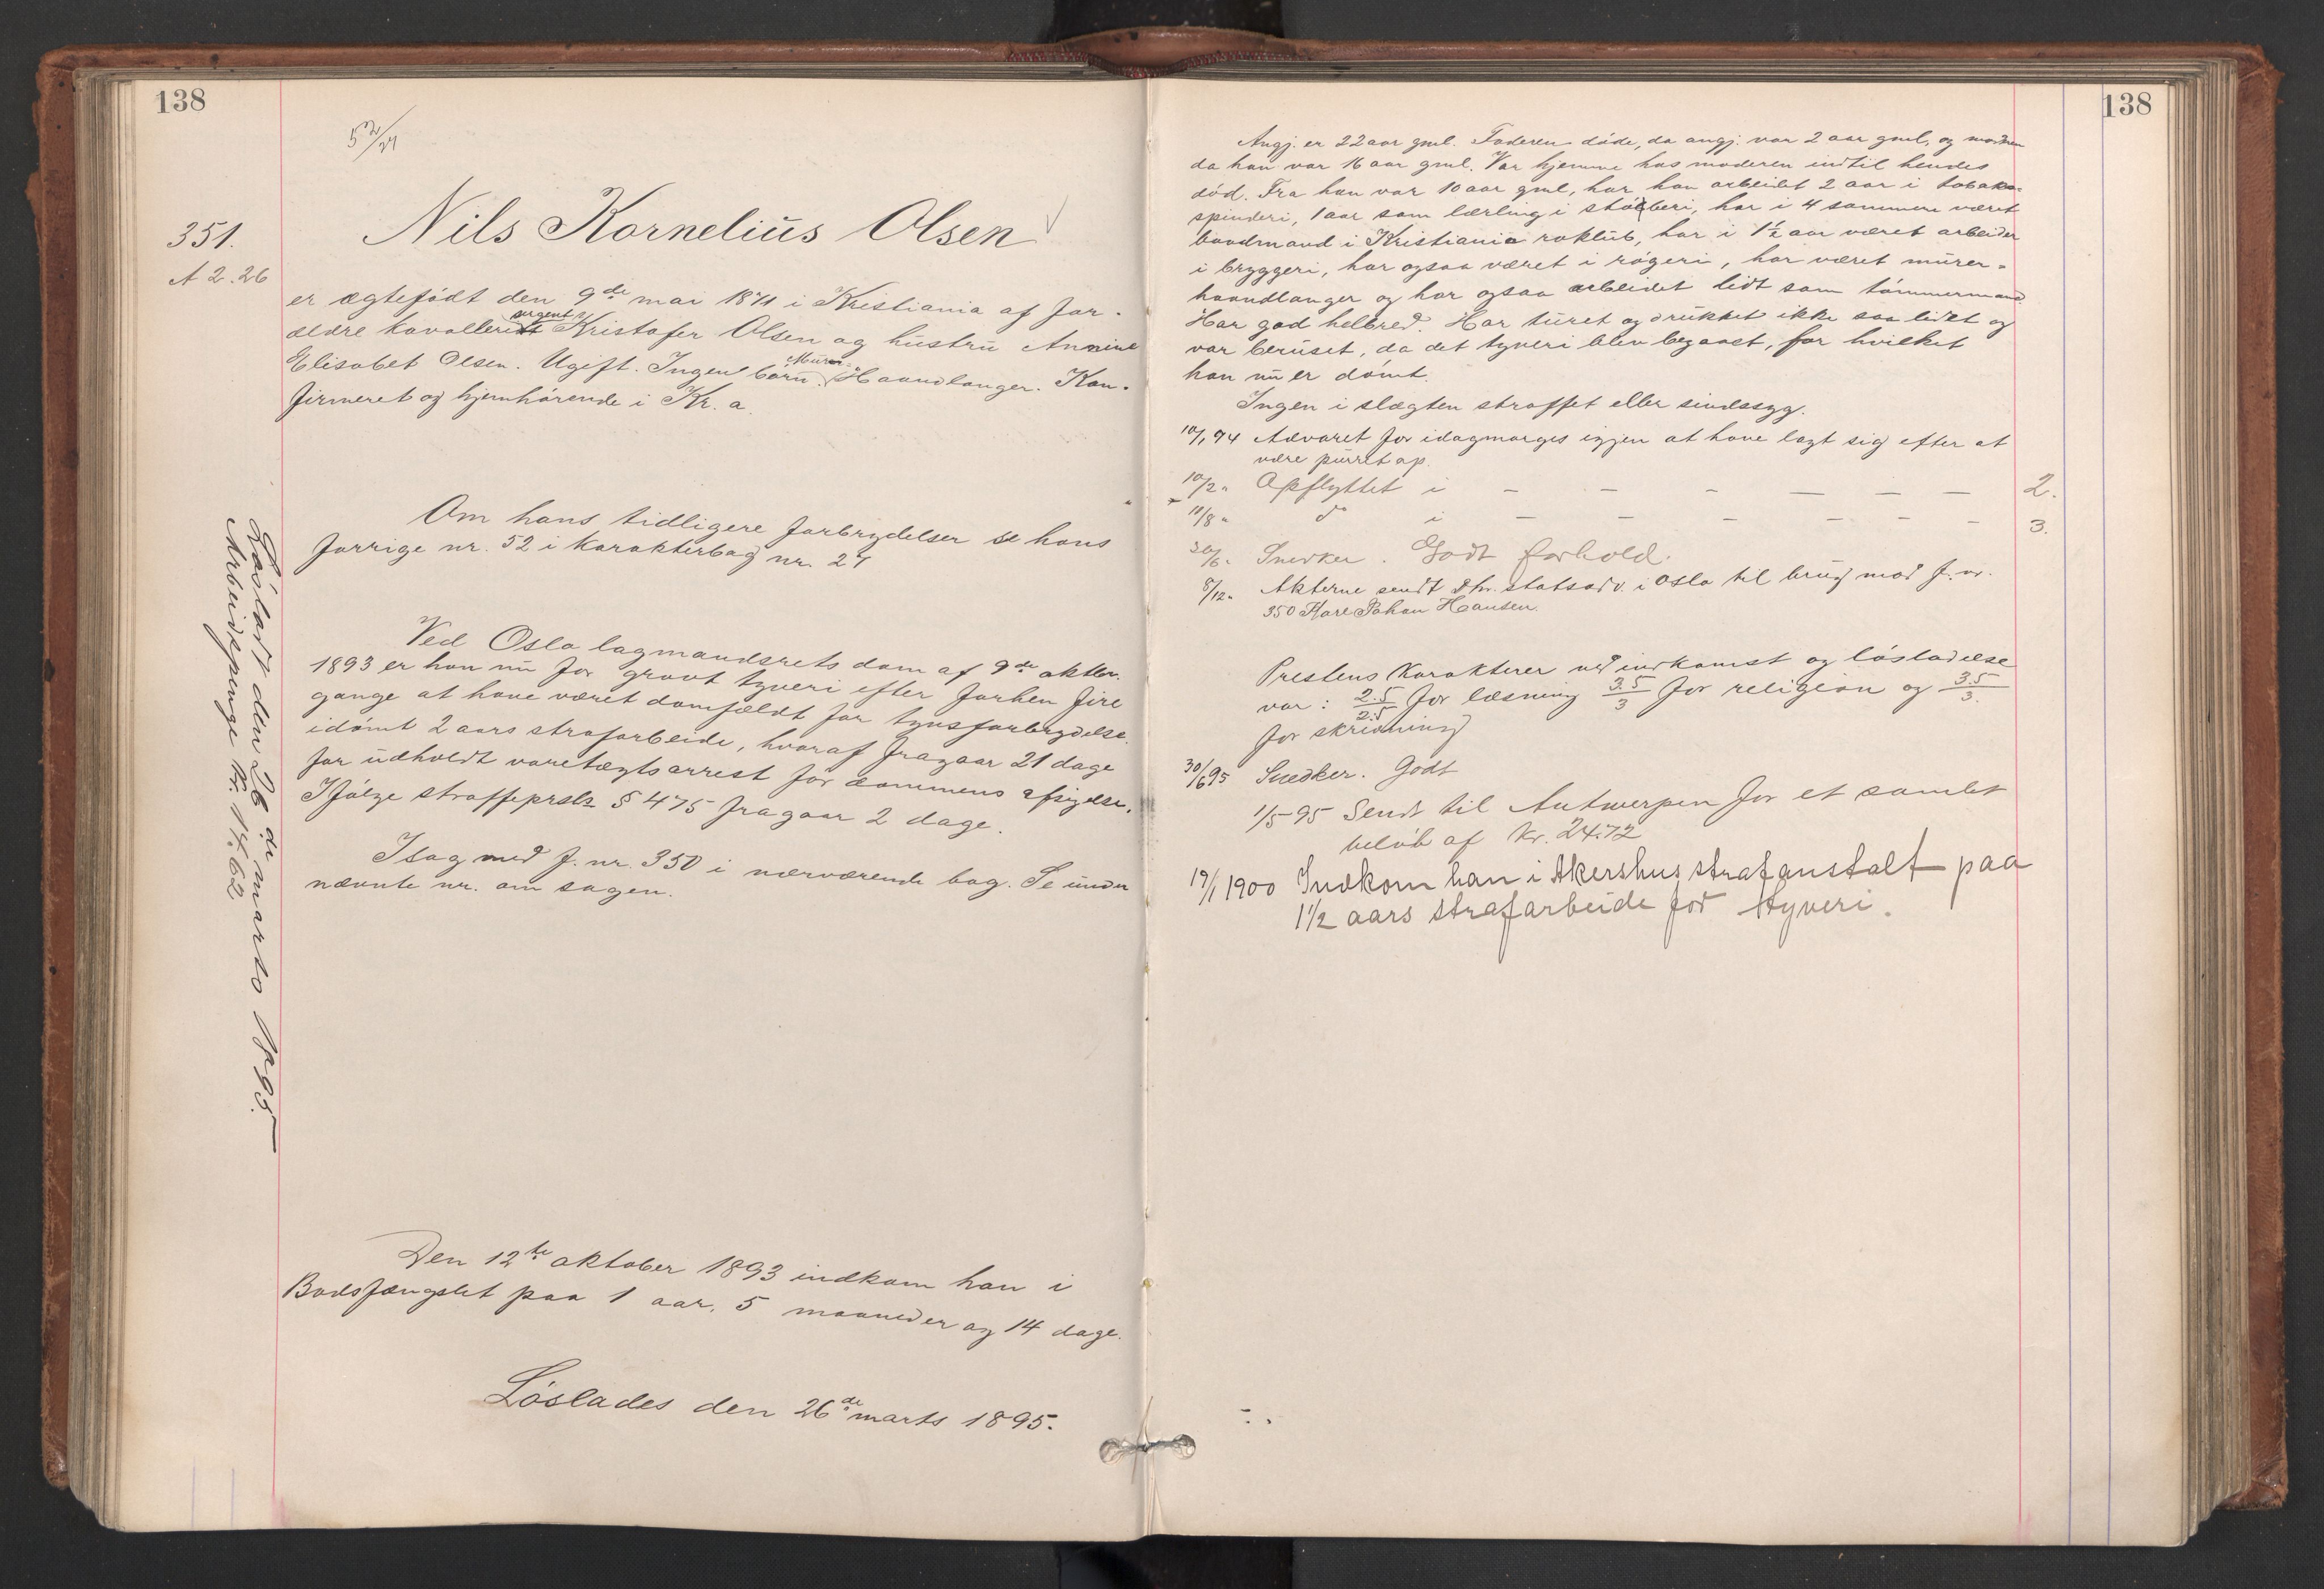 138
52/27
351.
A 2.26
Nils Kornelius Olsen
er ægtefødt den 9de mai 1871 i Kristiania af for-
ældre kavallerist sergent Kristofer Olsen og hustru Annine
Elisabet Olsen. Ugift. Ingen børn. Murer-Haandlanger. Kon-
firmeret og hjemhørende i Kr.a.
Om hans tidligere forbrydelser se hans
forrige nr. 52 i karakterbog nr. 27
Ved Oslo lagmandsrets dom af 9de oktbr.
1893 er han nu for grovt tyveri efter forhen fire
gange at have været domfældt for tyvsforbrydelse
idømt 2 aars strafarbeide, hvoraf fragaar 21 dage
for udholdt varetægtsarrest før dommens afsigelse.
Ifølge straffeprsls § 475 fragaar 2 dage.
I sag med f. nr. 350 i nærværende bog. Se under
nævnte nr. om sagen.
Den 12te oktober 1893 indkom han i
Bodsfængslet paa 1 aar, 5 maaneder og 14 dage.
Løslades den 26de marts 1895.
Løsladt den 26de marts 1895.
Arbeidspenge Kr. 14.62
138
Angj. er 22 aar gml. Faderen døde, da angj. var 2 aar gml, og moderen
da han var 16 aar gml. Var hjemme hos moderen indtil hendes
død. Fra han var 10 aar gml, har han arbeidet 2 aar i tobaks-
spinderi, 1 aar som lærling i støberi, har i 4 sommere været
baadmand i Kristiania roklub, har i 1½ aar været arbeider
i bryggeri, har ogsaa været i røgeri, har været murer-
haandlanger og har ogsaa arbeidet lidt som tømmermand.
Har god helbred. Har turet og drukket ikke saa lidet og
var beruset, da det tyveri blev begaaet, for hvilket
han nu er dømt.
Ingen i slægten straffet eller sindssyg.
10/1 94 Advaret for idagmorges igjen at have lagt sig efter at
være purret op.
10/2 " Opflyttet i – – – – – – 2.
10/8 " do i – – – – – – 3.
30/6 " Snedker. Godt forhold.
8/12 " Akterne sendt Hr. statsadv. i Oslo til brug mod f. nr.
350 Karl Johan Hansen.
Prestens karakterer ved indkomst og løsladelse
var: 2.5/2.5 for læsning 3.5/3 for religion og 3.5/3.
for skrivning
30/6 95 Snedker. Godt
1/5-95 Sendt til Antwerpen for et samlet
beløb af Kr. 24.72
19/1 1900 Indkom han i Akershus strafanstalt paa
1½ aars strafarbeide for tyveri.